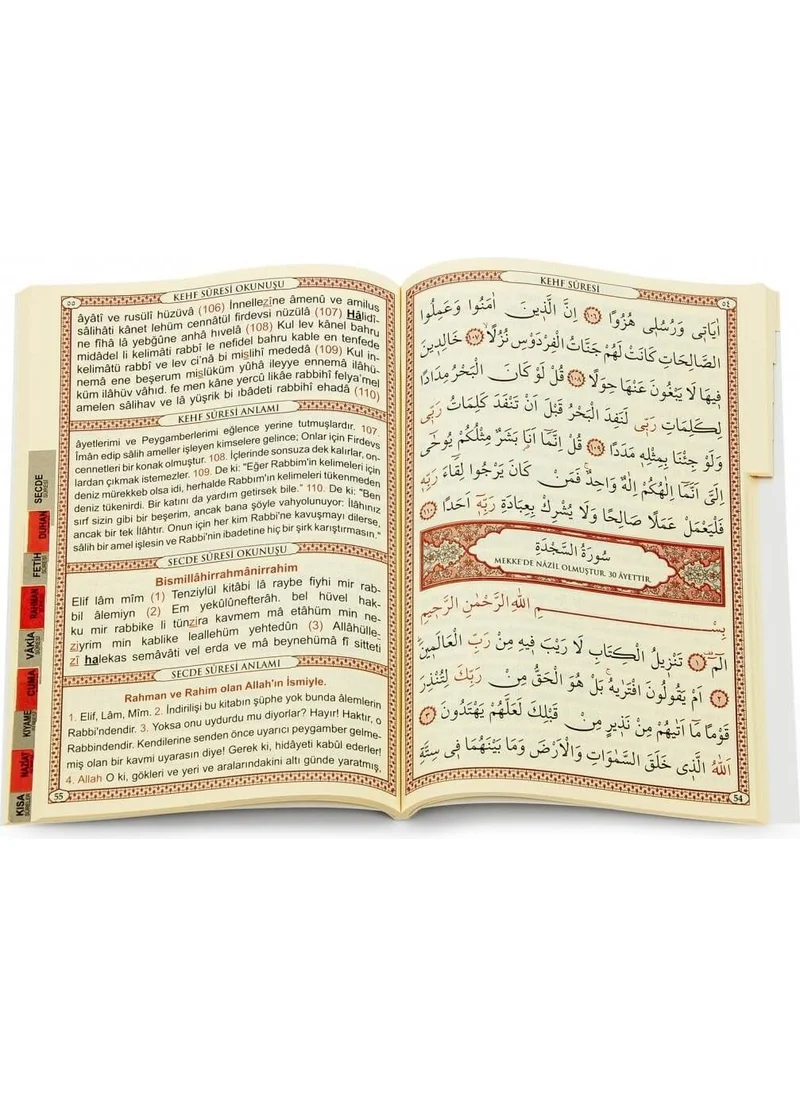 KEHF SÛRESİ
٥٤
اٰيَاتٖى وَرُسُلٖى هُزُوًا ﴿١٠٦﴾ اِنَّ الَّذٖينَ اٰمَنُوا وَعَمِلُوا
الصَّالِحَاتِ كَانَتْ لَهُمْ جَنَّاتُ الْفِرْدَوْسِ نُزُلًا ﴿١٠٧﴾ خَالِدٖينَ
فٖيهَا لَا يَبْغُونَ عَنْهَا حِوَلًا ﴿١٠٨﴾ قُلْ لَوْ كَانَ الْبَحْرُ مِدَادًا
لِكَلِمَاتِ رَبّٖى لَنَفِدَ الْبَحْرُ قَبْلَ اَنْ تَنْفَدَ كَلِمَاتُ رَبّٖى
وَلَوْ جِئْنَا بِمِثْلِهٖ مَدَدًا ﴿١٠٩﴾ قُلْ اِنَّمَا اَنَا بَشَرٌ مِثْلُكُمْ يُوحٰى
اِلَىَّ اَنَّمَا اِلٰهُكُمْ اِلٰهٌ وَاحِدٌ فَمَنْ كَانَ يَرْجُوا لِقَاءَ رَبِّهٖ
فَلْيَعْمَلْ عَمَلًا صَالِحًا وَلَا يُشْرِكْ بِعِبَادَةِ رَبِّهٖ اَحَدًا ﴿١١٠﴾
سُورَةُ السَّجْدَةِ
MEKKE'DE NÂZİL OLMUŞTUR. 30 ÂYETTİR.
بِسْمِ اللّٰهِ الرَّحْمٰنِ الرَّحٖيمِ
الٓمٓ ﴿١﴾ تَنْزٖيلُ الْكِتَابِ لَا رَيْبَ فٖيهِ مِنْ رَبِّ الْعَالَمٖينَ
﴿٢﴾ اَمْ يَقُولُونَ افْتَرٰيهُ بَلْ هُوَ الْحَقُّ مِنْ رَبِّكَ لِتُنْذِرَ
قَوْمًا مَا اَتٰيهُمْ مِنْ نَذٖيرٍ مِنْ قَبْلِكَ لَعَلَّهُمْ يَهْتَدُونَ ﴿٣﴾
اَللّٰهُ الَّذٖى خَلَقَ السَّمٰوَاتِ وَالْاَرْضَ وَمَا بَيْنَهُمَا فٖى سِتَّةِ
54
KEHF SÛRESİ OKUNUŞU
٥٥
âyâtî ve rusulî hüzüvâ (106) İnnellezîne âmenû ve amilus
sâlihâti kânet lehüm cennâtül firdevsi nüzülâ (107) Hâlidî-
ne fîhâ lâ yebğûne anhâ hıvelâ (108) Kul lev kânel bahru
midâdel li kelimâti rabbî le nefidel bahru kable en tenfede
kelimâtü rabbî ve lev ci'nâ bi mislihî mededâ (109) Kul in-
nemâ ene beşerum mislüküm yûhâ ileyye ennemâ ilâhü-
küm ilâhüv vâhıd. fe men kâne yercû likâe rabbihî felya'mel
amelen sâlihav ve lâ yüşrik bi ıbâdeti rabbihî ehadâ (110)
KEHF SÛRESİ ANLAMI
âyetlerimi ve Peygamberlerimi eğlence yerine tutmuşlardır. 107.
İmân edip sâlih ameller işleyen kimselere gelince; Onlar için Firdevs
cennetleri bir konak olmuştur. 108. İçlerinde sonsuza dek kalırlar, on-
lardan çıkmak istemezler. 109. De ki: "Eğer Rabbim'in kelimeleri için
deniz mürekkeb olsa idi, herhalde Rabbım'ın kelimeleri tükenmeden
deniz tükenirdi. Bir katını da yardım getirsek bile." 110. De ki: "Ben
sırf sizin gibi bir beşerim, ancak bana şöyle vahyolunuyor: İlâhınız
ancak bir tek ilâhtır. Onun için her kim Rabbi'ne kavuşmayı dilerse,
sâlih bir amel işlesin ve Rabbi'nin ibadetine hiç bir şirk karıştırmasın."
SECDE SÛRESİ OKUNUŞU
Bismillâhirrahmânirrahim
Elif lâm mîm (1) Tenziylül kitâbi lâ raybe fiyhi mir rab-
bil âlemiyn (2) Em yekûlûnefterâh. bel hüvel hak-
ku mir rabbike li tünzira kavmem mâ etâhüm min ne-
ziyrim min kablike leallehüm yehtedûn (3) Allâhülle-
zî halekas semâvâti vel erda ve mâ beynehümâ fî sitteti
SECDE SÛRESİ ANLAMI
Rahman ve Rahim olan Allah'ın İsmiyle.
1. Elif, Lâm, Mîm. 2. İndirilişi bu kitabın şüphe yok bunda âlemlerin
Rabbi'ndendir. 3. Yoksa onu uydurdu mu diyorlar? Hayır! Haktır, o
Rabbindendir. Kendilerine senden önce uyarıcı peygamber gelme-
miş olan bir kavmi uyarasın diye! Gerek ki, hidâyeti kabûl ederler!
4. Allah O ki, gökleri ve yeri ve aralarındakini altı günde yaratmış,
55
SECDE
SÛRESİ
DUHAN
FETİH
SÛRESİ
RAHMAN
VÂKIA
SÛRESİ
CUMA
KIYAME
NAZİAT
KISA
SÛRELER